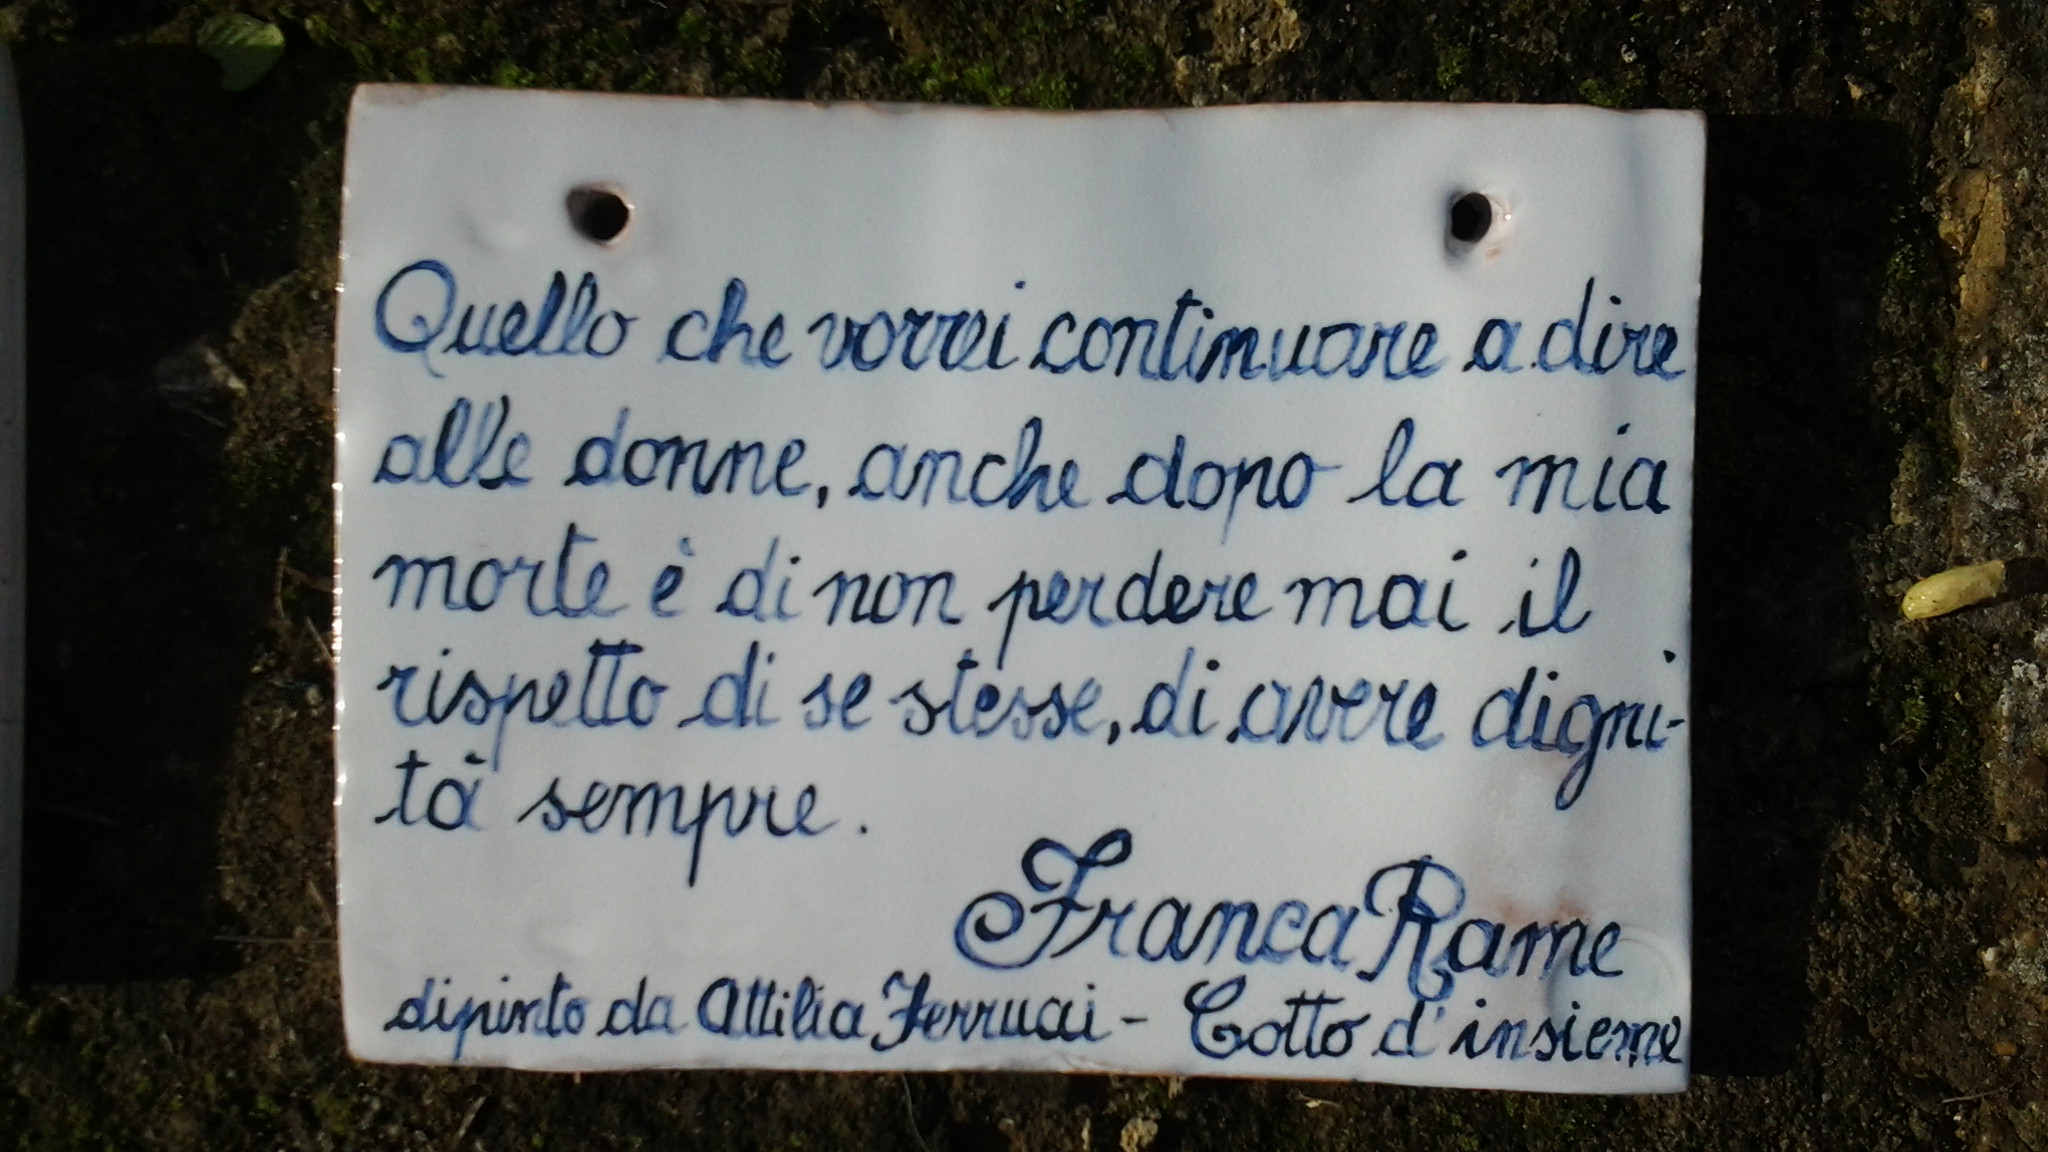 Quello che vorrei continuare a dire
alle donne, anche dopo la mia
morte è di non perdere mai il
rispetto di se stesse, di avere digni-
tà sempre.
Franca Rame
dipinto da Attilia Ferrucci - Cotto d'insieme